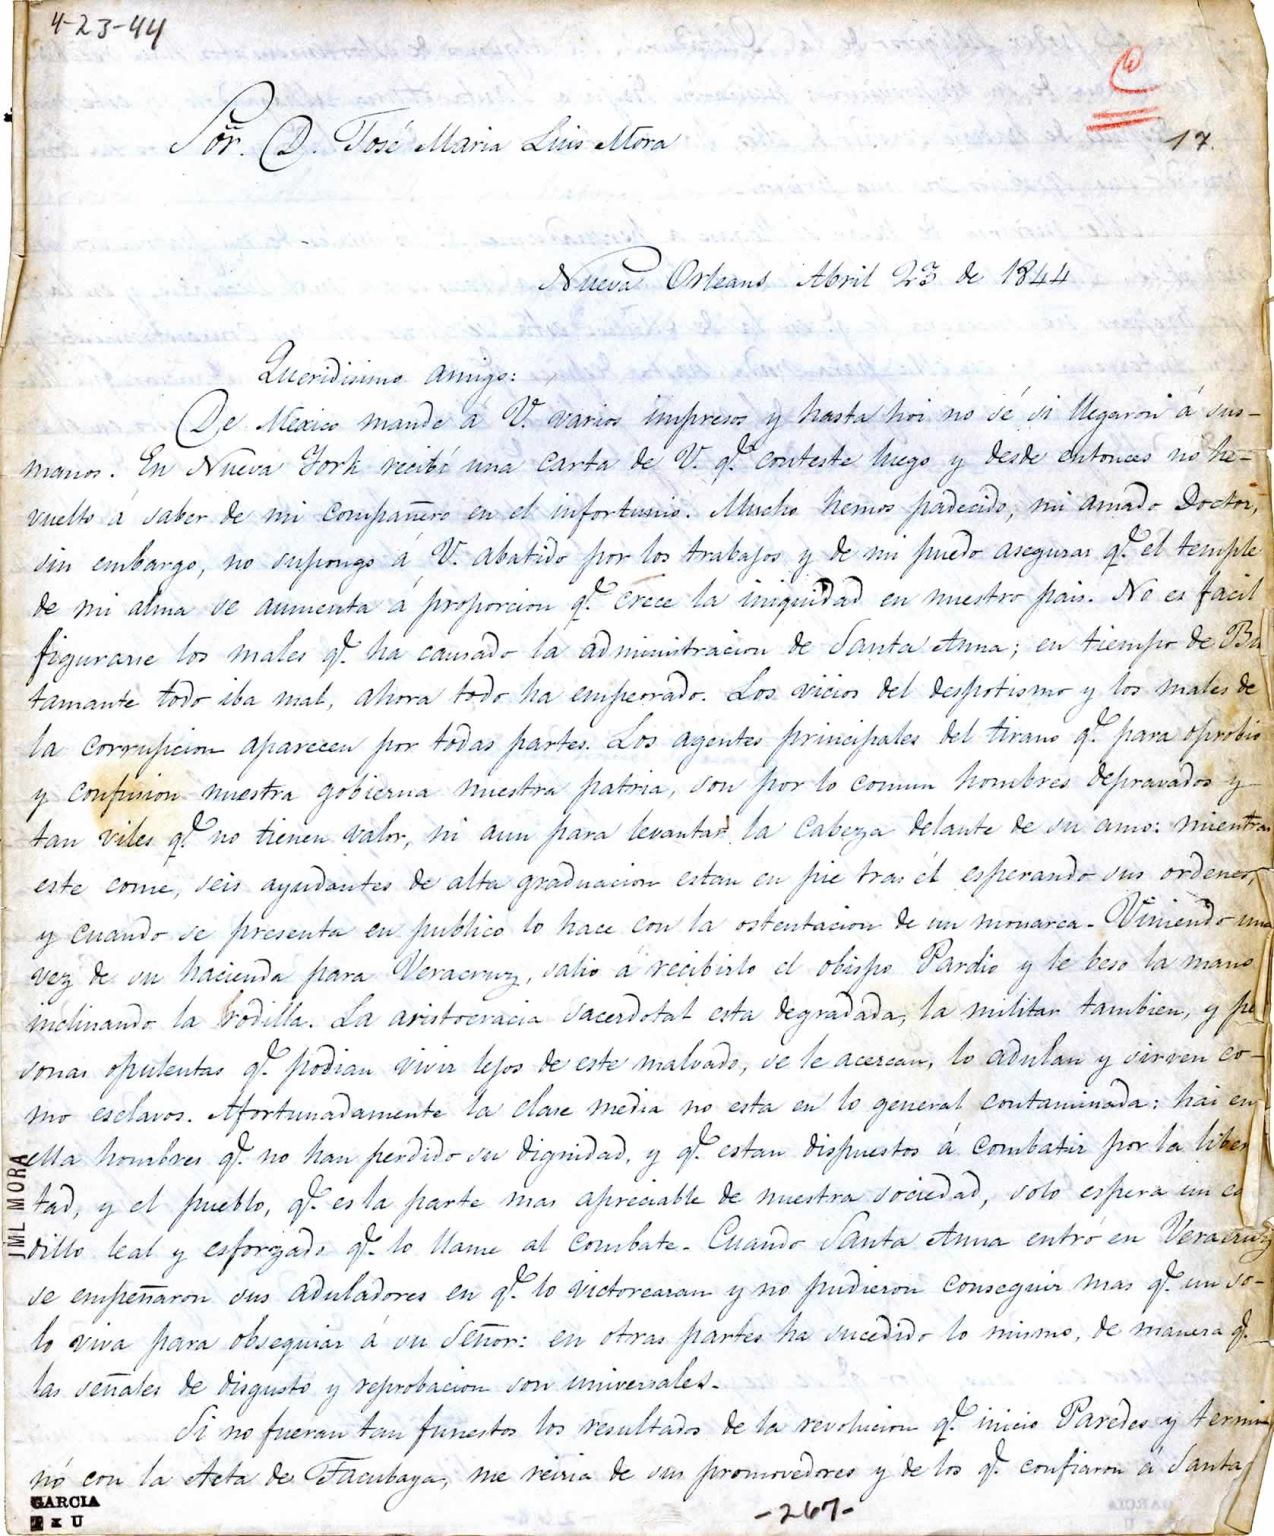 4-23-44
Sōr. D. José Maria Luis Mora
17.
Nueva Orleans, Abril 23 de 1844
Queridisimo amigo:
De Mexico mandé á V. varios impresos y hasta hoi no sé si llegaron á sus
manos. En Nueva York recibí una carta de V. q.e contesté luego y desde entonces no he
vuelto á saber de mi compañero en el infortunio. Mucho hemos padecido, mi amado Doctor,
sin embargo, no supongo á V. abatido por los trabajos y de mi puedo asegurar q.e el temple
de mi alma se aumenta á proporcion q.e crece la iniquidad en nuestro pais. No es facil
figurarse los males q.e ha causado la administracion de Santa Anna; en tiempo de Bus
tamante todo iba mal, ahora todo ha empeorado. Los vicios del despotismo y los males de
la corrupcion aparecen por todas partes. Los agentes principales del tirano q.e para oprobio
y confusion nuestra gobierna nuestra patria, son por lo comun hombres depravados y
tan viles q.e no tienen valor, ni aun para levantar la cabeza delante de su amo: mientras
este come, seis ayudantes de alta graduacion estan en pie tras él esperando sus ordenes,
y cuando se presenta en publico lo hace con la ostentacion de un monarca. Viniendo una
vez de su hacienda para Veracruz, salio á recibirlo el obispo Pardio y le beso la mano
inclinando la rodilla. La aristocracia sacerdotal esta degradada, la militar tambien, y per
sonas opulentas q.e podian vivir lejos de este malvado, se le acercan, lo adulan y sirven co-
mo esclavos. Afortunadamente la clase media no esta en lo general contaminada: hai en
ella hombres q.e no han perdido su dignidad, y q.e estan dispuestos á combatir por la liber
tad, y el pueblo, q.e es la parte mas apreciable de nuestra sociedad, solo espera un cau
dillo leal y esforzado q.e lo llame al combate. Cuando Santa Anna entró en Veracruz
se empeñaron sus aduladores en q.e lo victorearan y no pudieron conseguir mas q.e un so-
lo viva para obsequiar á su Señor: en otras partes ha sucedido lo mismo, de manera q.e
las señales de disgusto y reprobacion son universales.
Si no fueran tan funestos los resultados de la revolucion q.e inicio Paredes y termi
nó con la Acta de Tacubaya, me reiria de sus promovedores y de los q.e confiaron á Santa
JML MORA
GARCIA
T x U
-267-